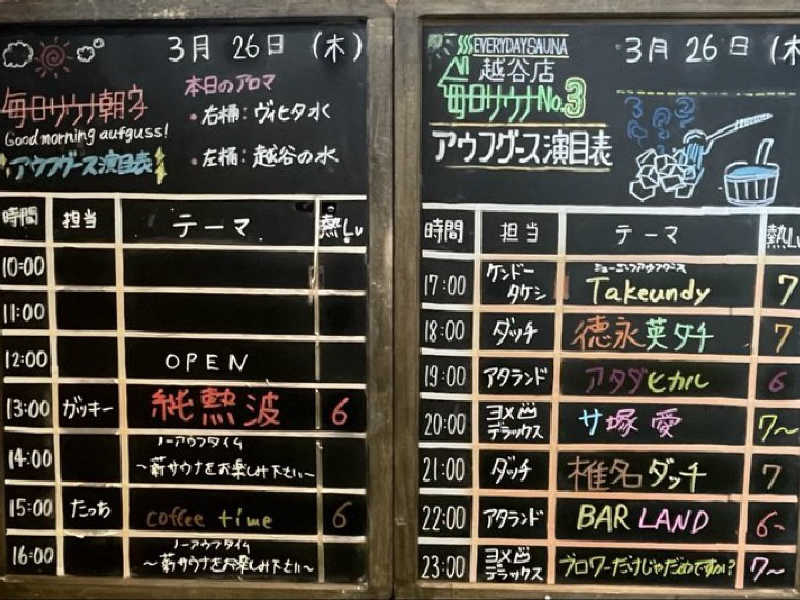 3月 26日 (木)
毎日サウナ朝ウ
Good morning aufguss!
アウフグース演目表
本日のアロマ
・右桶：ヴィヒタ水
・左桶：越谷の水
時間 担当 テーマ 熱Lv
10:00
11:00
12:00 OPEN
13:00 ガッキー 純熱波 6
14:00 ノーアウフタイム
～薪サウナをお楽しみ下さい～
15:00 たっち coffee time 6
16:00 ノーアウフタイム
～薪サウナをお楽しみ下さい～
EVERYDAY SAUNA
越谷店
毎日サウナNo.3
アウフグース演目表
3月 26日 (木
時間 担当 テーマ 熱Lv
17:00 ケンドータケシ Takeundy 7
18:00 ダッチ 徳永英タチ 7
19:00 アタランド アタダヒカル 6
20:00 ヨメ凶デラックス サ塚 愛 7～
21:00 ダッチ 椎名ダッチ 7
22:00 アタランド BAR LAND 6~
23:00 ヨメ凶デラックス ブロワーだけじゃだめですか? 7～